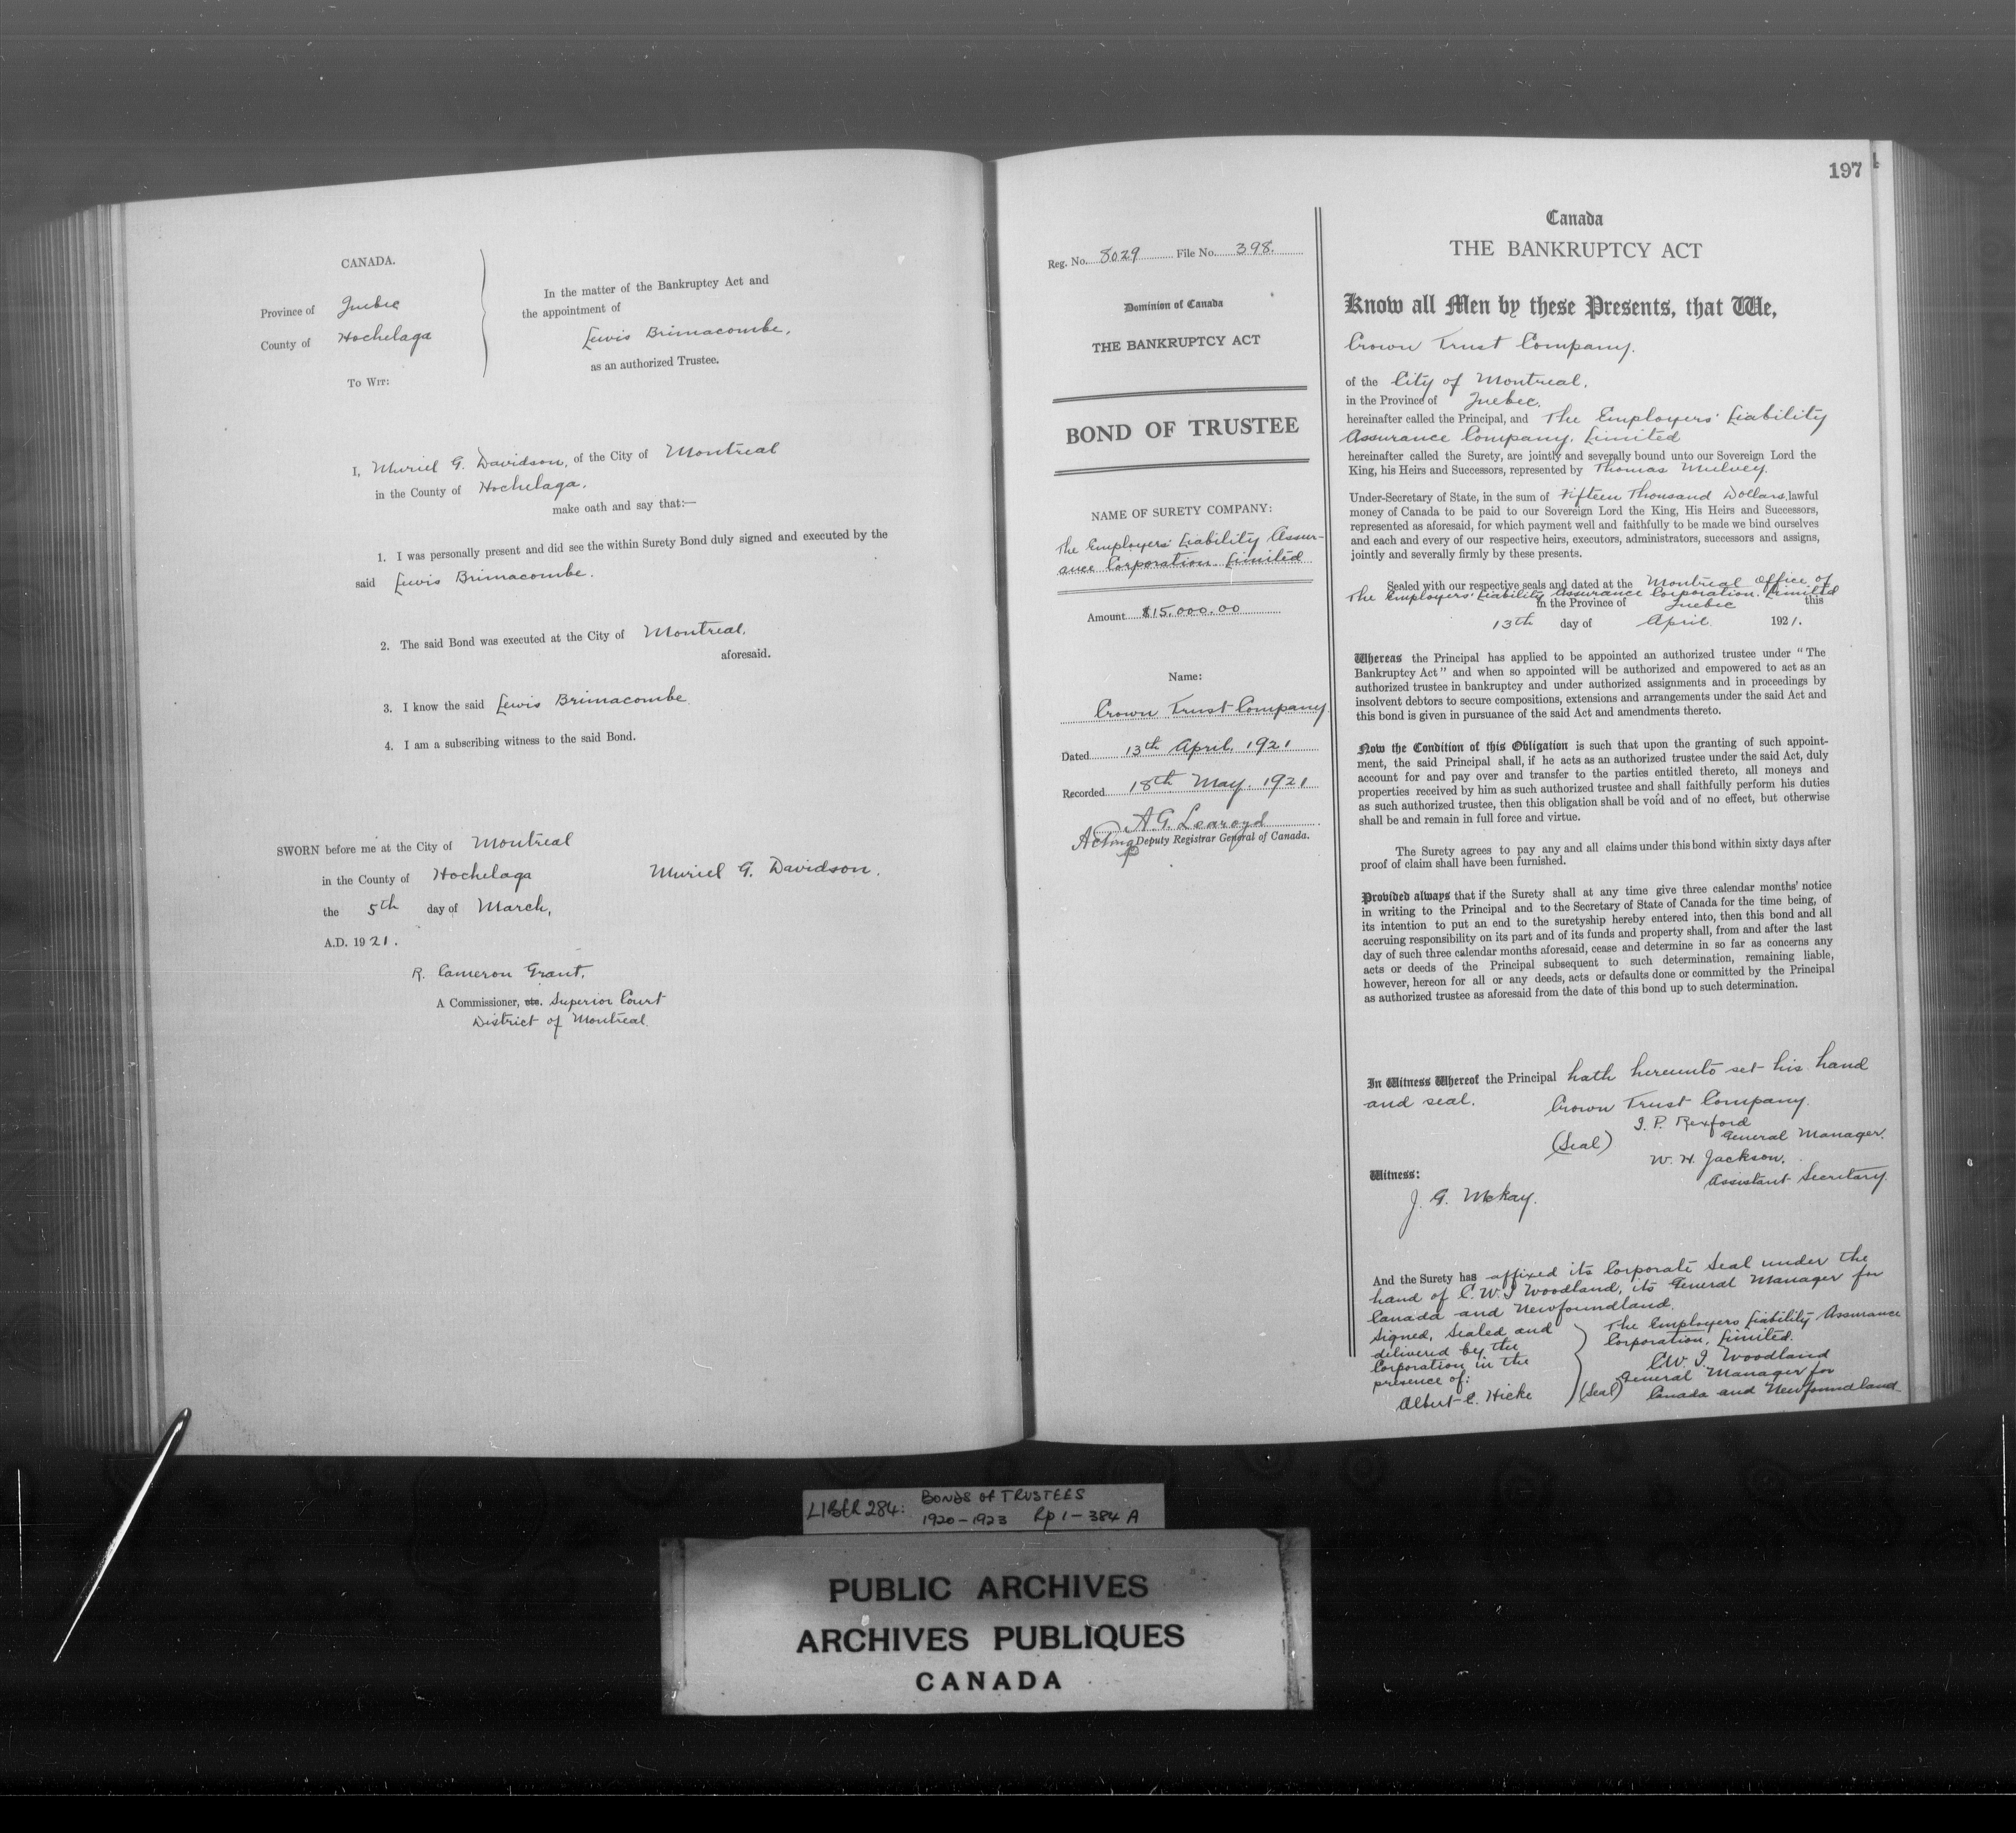 CANADA.
Province of Quebec
County of Hochelaga
To Wit:
In the matter of the Bankruptcy Act and
the appointment of
Lewis Brimacombe,
as an authorized Trustee.
I, Muriel G. Davidson, of the City of Montreal
in the County of Hochelaga,
make oath and say that:—
1. I was personally present and did see the within Surety Bond duly signed and executed by the
said Lewis Brimacombe.
2. The said Bond was executed at the City of Montreal,
aforesaid.
3. I know the said Lewis Brimacombe
4. I am a subscribing witness to the said Bond.
SWORN before me at the City of Montreal
in the County of Hochelaga
the 5th day of March,
A.D. 1921.
Muriel G. Davidson.
R. Cameron Grant,
A Commissioner, etc. Superior Court
District of Montreal
197
Reg. No. 8029 File No. 398.
Dominion of Canada
THE BANKRUPTCY ACT
BOND OF TRUSTEE
NAME OF SURETY COMPANY:
The Employers' Liability Assur-
ance Corporation Limited
Amount $15,000.00
Name:
Crown Trust Company
Dated 13th April, 1921
Recorded 18th May, 1921
A.G. Learoyd
Acting Deputy Registrar General of Canada.
Canada
THE BANKRUPTCY ACT
Know all Men by these Presents, that We,
Crown Trust Company.
of the City of Montreal,
in the Province of Quebec,
hereinafter called the Principal, and The Employers' Liability
Assurance Company, Limited
hereinafter called the Surety, are jointly and severally bound unto our Sovereign Lord the
King, his Heirs and Successors, represented by Thomas Mulvey,
Under-Secretary of State, in the sum of Fifteen Thousand Dollars, lawful
money of Canada to be paid to our Sovereign Lord the King, His Heirs and Successors,
represented as aforesaid, for which payment well and faithfully to be made we bind ourselves
and each and every of our respective heirs, executors, administrators, successors and assigns,
jointly and severally firmly by these presents.
Sealed with our respective seals and dated at the Montreal Office of
The Employers' Liability Assurance Corporation, Limited
in the Province of Quebec this
13th day of April 1921.
Whereas the Principal has applied to be appointed an authorized trustee under "The
Bankruptcy Act" and when so appointed will be authorized and empowered to act as an
authorized trustee in bankruptcy and under authorized assignments and in proceedings by
insolvent debtors to secure compositions, extensions and arrangements under the said Act and
this bond is given in pursuance of the said Act and amendments thereto.
Now the Condition of this Obligation is such that upon the granting of such appoint-
ment, the said Principal shall, if he acts as an authorized trustee under the said Act, duly
account for and pay over and transfer to the parties entitled thereto, all moneys and
properties received by him as such authorized trustee and shall faithfully perform his duties
as such authorized trustee, then this obligation shall be void and of no effect, but otherwise
shall be and remain in full force and virtue.
The Surety agrees to pay any and all claims under this bond within sixty days after
proof of claim shall have been furnished.
Provided always that if the Surety shall at any time give three calendar months' notice
in writing to the Principal and to the Secretary of State of Canada for the time being, of
its intention to put an end to the suretyship hereby entered into, then this bond and all
accruing responsibility on its part and of its funds and property shall, from and after the last
day of such three calendar months aforesaid, cease and determine in so far as concerns any
acts or deeds of the Principal subsequent to such determination, remaining liable,
however, hereon for all or any deeds, acts or defaults done or committed by the Principal
as authorized trustee as aforesaid from the date of this bond up to such determination.
In Witness Whereof the Principal hath hereunto set his hand
and seal.
Crown Trust Company.
I. P. Rexford
General Manager.
(Seal)
W. H. Jackson,
Assistant Secretary.
Witness:
J. G. McKay.
And the Surety has affixed its Corporate Seal under the
hand of C. W. I Woodland, its General Manager for
Canada and Newfoundland.
Signed, Sealed and
delivered by the
Corporation in the
presence of:
Albert C. Hicke
The Employers Liability Assurance
Corporation, Limited.
C.W. I. Woodland
General Manager for
(Seal) Canada and Newfoundland
LIBER 284: BONDS OF TRUSTEES
1920-1923 Rp 1-384 A
PUBLIC ARCHIVES
ARCHIVES PUBLIQUES
CANADA